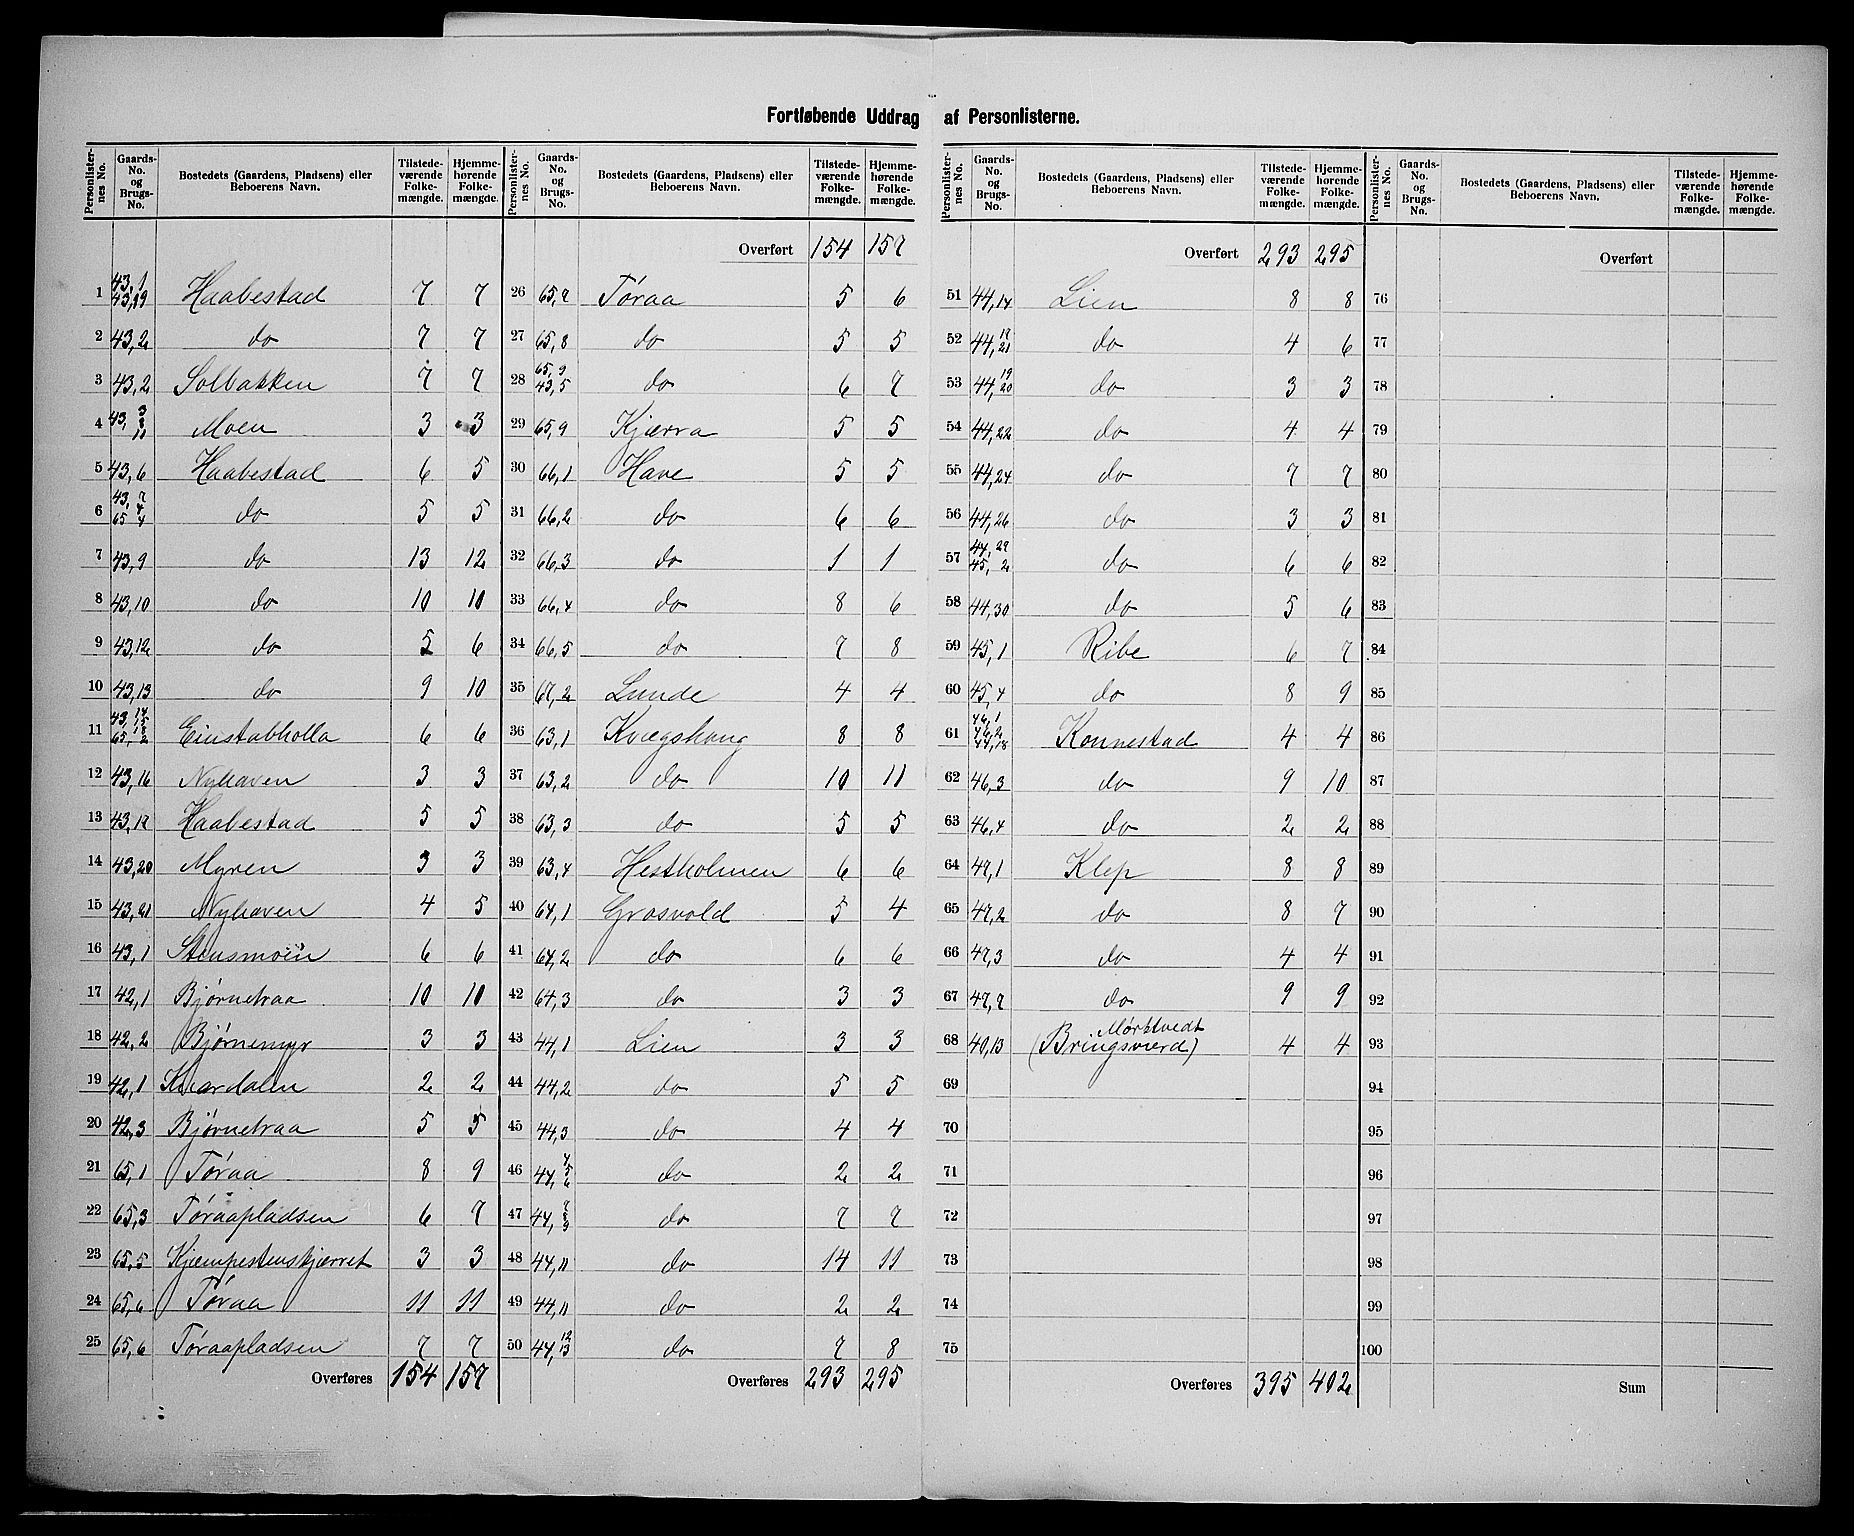 Fortløbende Uddrag af Personlisterne.
Personlisternes No. | Gaards-No. og Brugs-No. | Bostedets (Gaardens, Pladsens) eller Beboerens Navn. | Tilstedeværende Folkemængde. | Hjemmehørende Folkemængde.
1 | 43,1 43,19 | Haabestad | 7 | 7
2 | 43,2 | do | 7 | 7
3 | 43,2 | Solbakken | 7 | 7
4 | 43, 3 8 11 | Moen | 3 | 3
5 | 43,6 | Haabestad | 6 | 5
6 | 43,7 4 65,4 | do | 5 | 5
7 | 43,9 | do | 13 | 12
8 | 43,10 | do | 10 | 10
9 | 43,12 | do | 5 | 6
10 | 43,13 | do | 9 | 10
11 | 43,14 15 18 65,2 | Einstabholla | 6 | 6
12 | 43,16 | Nyhaven | 3 | 3
13 | 43,17 | Haabestad | 5 | 5
14 | 43,20 | Myren | 3 | 3
15 | 43,21 | Nyhaven | 4 | 5
16 | 43,1 | Stensmoen | 6 | 6
17 | 42,1 | Bjørnetraa | 10 | 10
18 | 42,2 | Bjørnemyr | 3 | 3
19 | 42,1 | Kverdalen | 2 | 2
20 | 42,3 | Bjørnetraa | 5 | 5
21 | 65,1 | Tøraa | 8 | 9
22 | 65,3 | Tøraapladsen | 6 | 7
23 | 65,5 | Kjæmpestenskjærret | 3 | 3
24 | 65,6 | Tøraa | 11 | 11
25 | 65,6 | Tøraapladsen | 7 | 7
Overføres 154 157
Personlisternes No. | Gaards-No. og Brugs-No. | Bostedets (Gaardens, Pladsens) eller Beboerens Navn. | Tilstedeværende Folkemængde. | Hjemmehørende Folkemængde.
Overført 154 157
26 | 65,7 | Tøraa | 5 | 6
27 | 65,8 | do | 5 | 5
28 | 65,9 43,5 | do | 6 | 7
29 | 65,9 | Kjærra | 5 | 5
30 | 66,1 | Have | 5 | 5
31 | 66,2 | do | 6 | 6
32 | 66,3 | do | 1 | 1
33 | 66,4 | do | 8 | 6
34 | 66,5 | do | 7 | 8
35 | 67,2 | Lunde | 4 | 4
36 | 63,1 | Kvægshaug | 8 | 8
37 | 63,2 | do | 10 | 11
38 | 63,3 | do | 5 | 5
39 | 63,4 | Hestholmen | 6 | 6
40 | 64,1 | Grosvold | 5 | 4
41 | 64,2 | do | 6 | 6
42 | 64,3 | do | 3 | 3
43 | 44,1 | Lien | 3 | 3
44 | 44,2 | do | 5 | 5
45 | 44,3 | do | 4 | 4
46 | 44, 4 5 6 | do | 2 | 2
47 | 44, 7 8 9 | do | 7 | 7
48 | 44,11 | do | 14 | 11
49 | 44,11 | do | 2 | 2
50 | 44, 12 13 | do | 7 | 8
Overføres 293 295
Personlisternes No. | Gaards-No. og Brugs-No. | Bostedets (Gaardens, Pladsens) eller Beboerens Navn. | Tilstedeværende Folkemængde. | Hjemmehørende Folkemængde.
Overført 293 295
51 | 44,14 | Lien | 8 | 8
52 | 44, 17 21 | do | 4 | 6
53 | 44, 19 20 | do | 3 | 3
54 | 44,22 | do | 4 | 4
55 | 44,24 | do | 7 | 7
56 | 44,26 | do | 3 | 3
57 | 44,29 45,2 | do | 6 | 6
58 | 44,30 | do | 5 | 6
59 | 45,1 | Ribe | 6 | 7
60 | 45,4 | do | 8 | 9
61 | 46,1 46,2 44,18 | Konnestad | 4 | 4
62 | 46,3 | do | 9 | 10
63 | 46,4 | do | 2 | 2
64 | 47,1 | Klep | 8 | 8
65 | 47,2 | do | 8 | 7
66 | 47,3 | do | 4 | 4
67 | 47,7 | do | 9 | 9
68 | 40,13 | Mørktvedt (Bringsværd) | 4 | 4
69
70
71
72
73
74
75
Overføres 395 402
Personlisternes No. | Gaards-No. og Brugs-No. | Bostedets (Gaardens, Pladsens) eller Beboerens Navn. | Tilstedeværende Folkemængde. | Hjemmehørende Folkemængde.
Overført
76
77
78
79
80
81
82
83
84
85
86
87
88
89
90
91
92
93
94
95
96
97
98
99
100
Sum